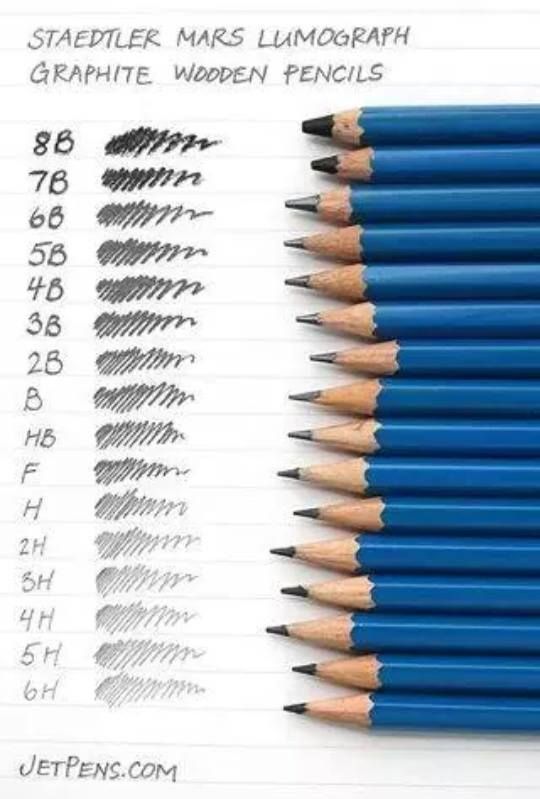 STAEDTLER MARS LUMOGRAPH
GRAPHITE WOODEN PENCILS
8B
7B
6B
5B
4B
3B
2B
B
HB
F
H
2H
3H
4H
5H
6H
JETPENS.COM